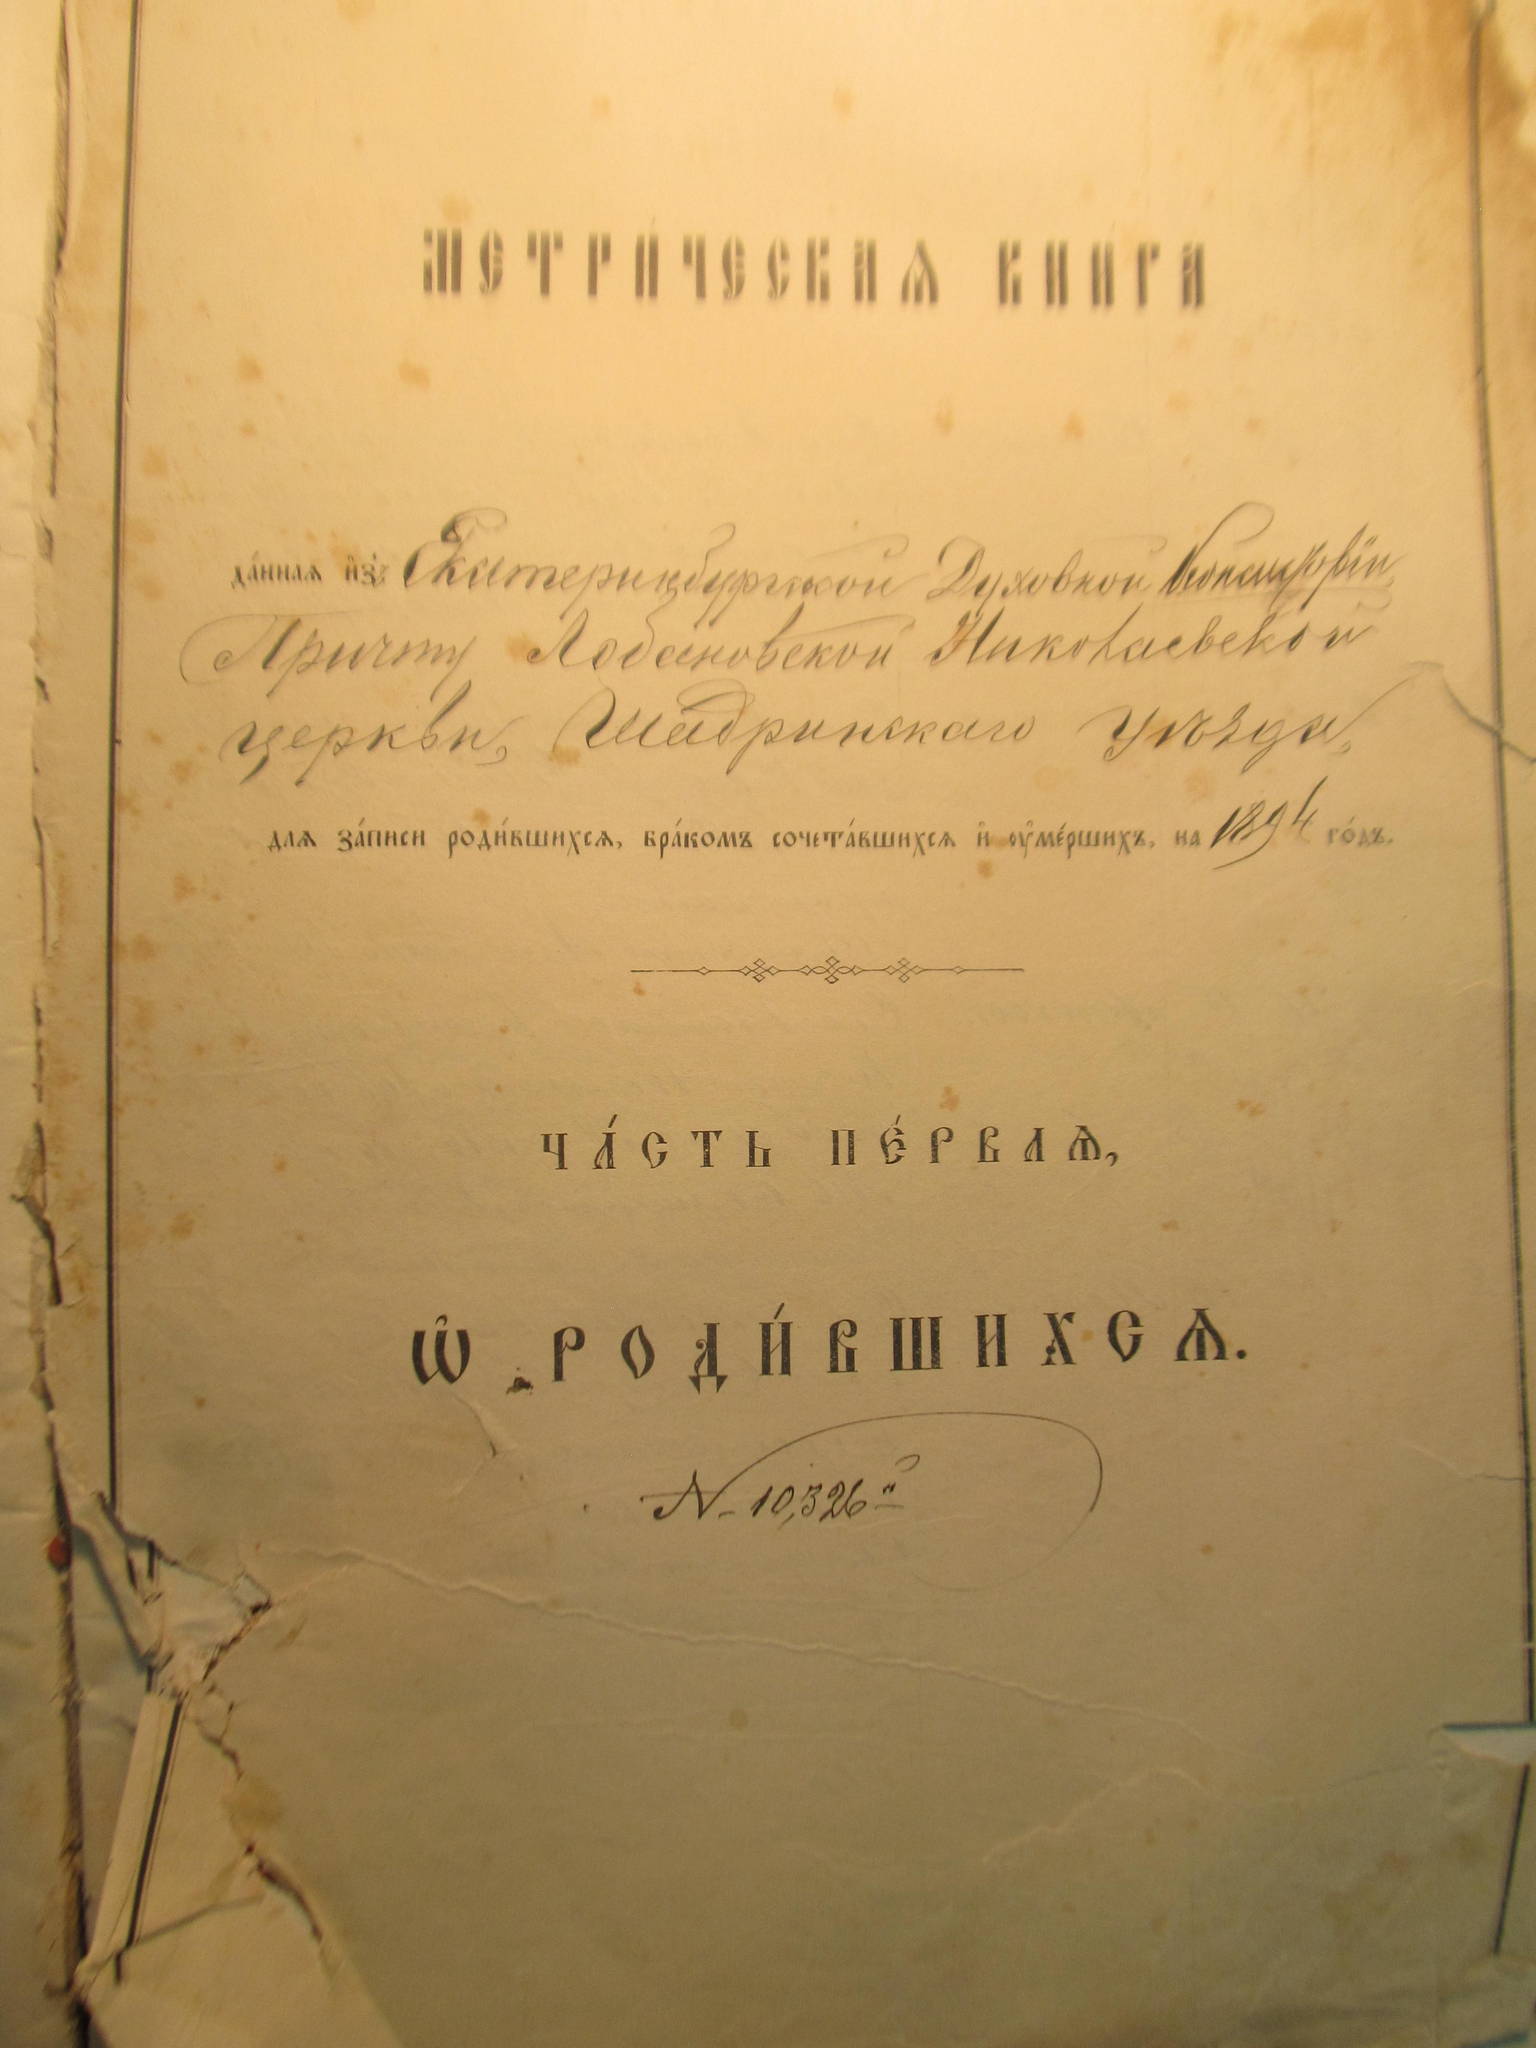 МЕТРИ́ЧЕСКАѦ КНИ́ГА
да́ннаѧ и҆з̾ Екатеринбургской Духовной Консисторіи,
Причту Лобановской Николаевской
церкви, Шадринскаго Уѣзда,
длѧ за́писи роди́вшихсѧ, бра́комъ сочета́вшихсѧ и҆ оу҆ме́ршихъ, на 1894 го́дъ.
ЧА́СТЬ ПЕ́РВАѦ,
Ѡ҆ РОДИ́ВШИХСѦ.
№ 10,326 й